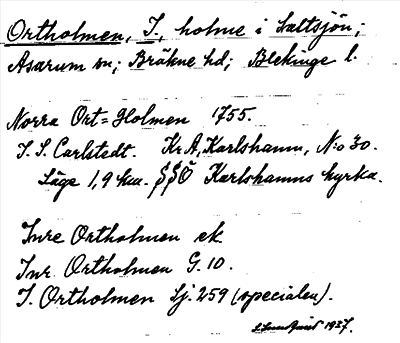 Ortholmen, I., holme i Saltsjön;
Asarum sn; Bräkne hd; Blekinge l.
Norra Ort=Holmen 1755.
I. S. Carlstedt. Kr A, Karlshamn, N:o 30.
Läge 1,9 km. SSÖ Karlshamns kyrka.
Inre Ortholmen ek.
Inr. Ortholmen G. 10.
I. Ortholmen Sj. 259 (specialen).
1937.